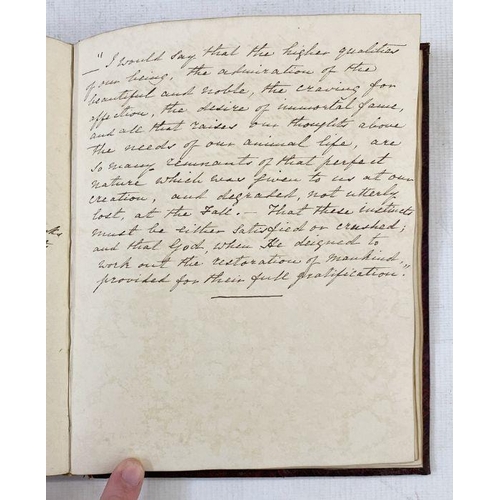 — "I would say that the higher qualities
of our being, the admiration of the
beautiful and noble, the craving for
affection, the desire of immortal fame,
and all that raises our thoughts above
the needs of our animal life, are
so many remnants of that perfect
nature which was given to us at our
creation, and degraded, not utterly
lost, at the Fall. – That these instincts
must be either satisfied or crushed;
and that God, when He deigned to
work out the restoration of mankind,
provided for their full gratification."